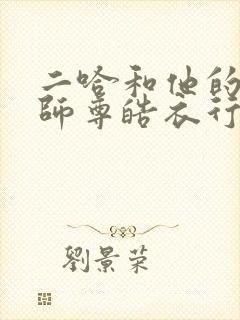 二哈和他的
師尊皓衣行
劉景荣